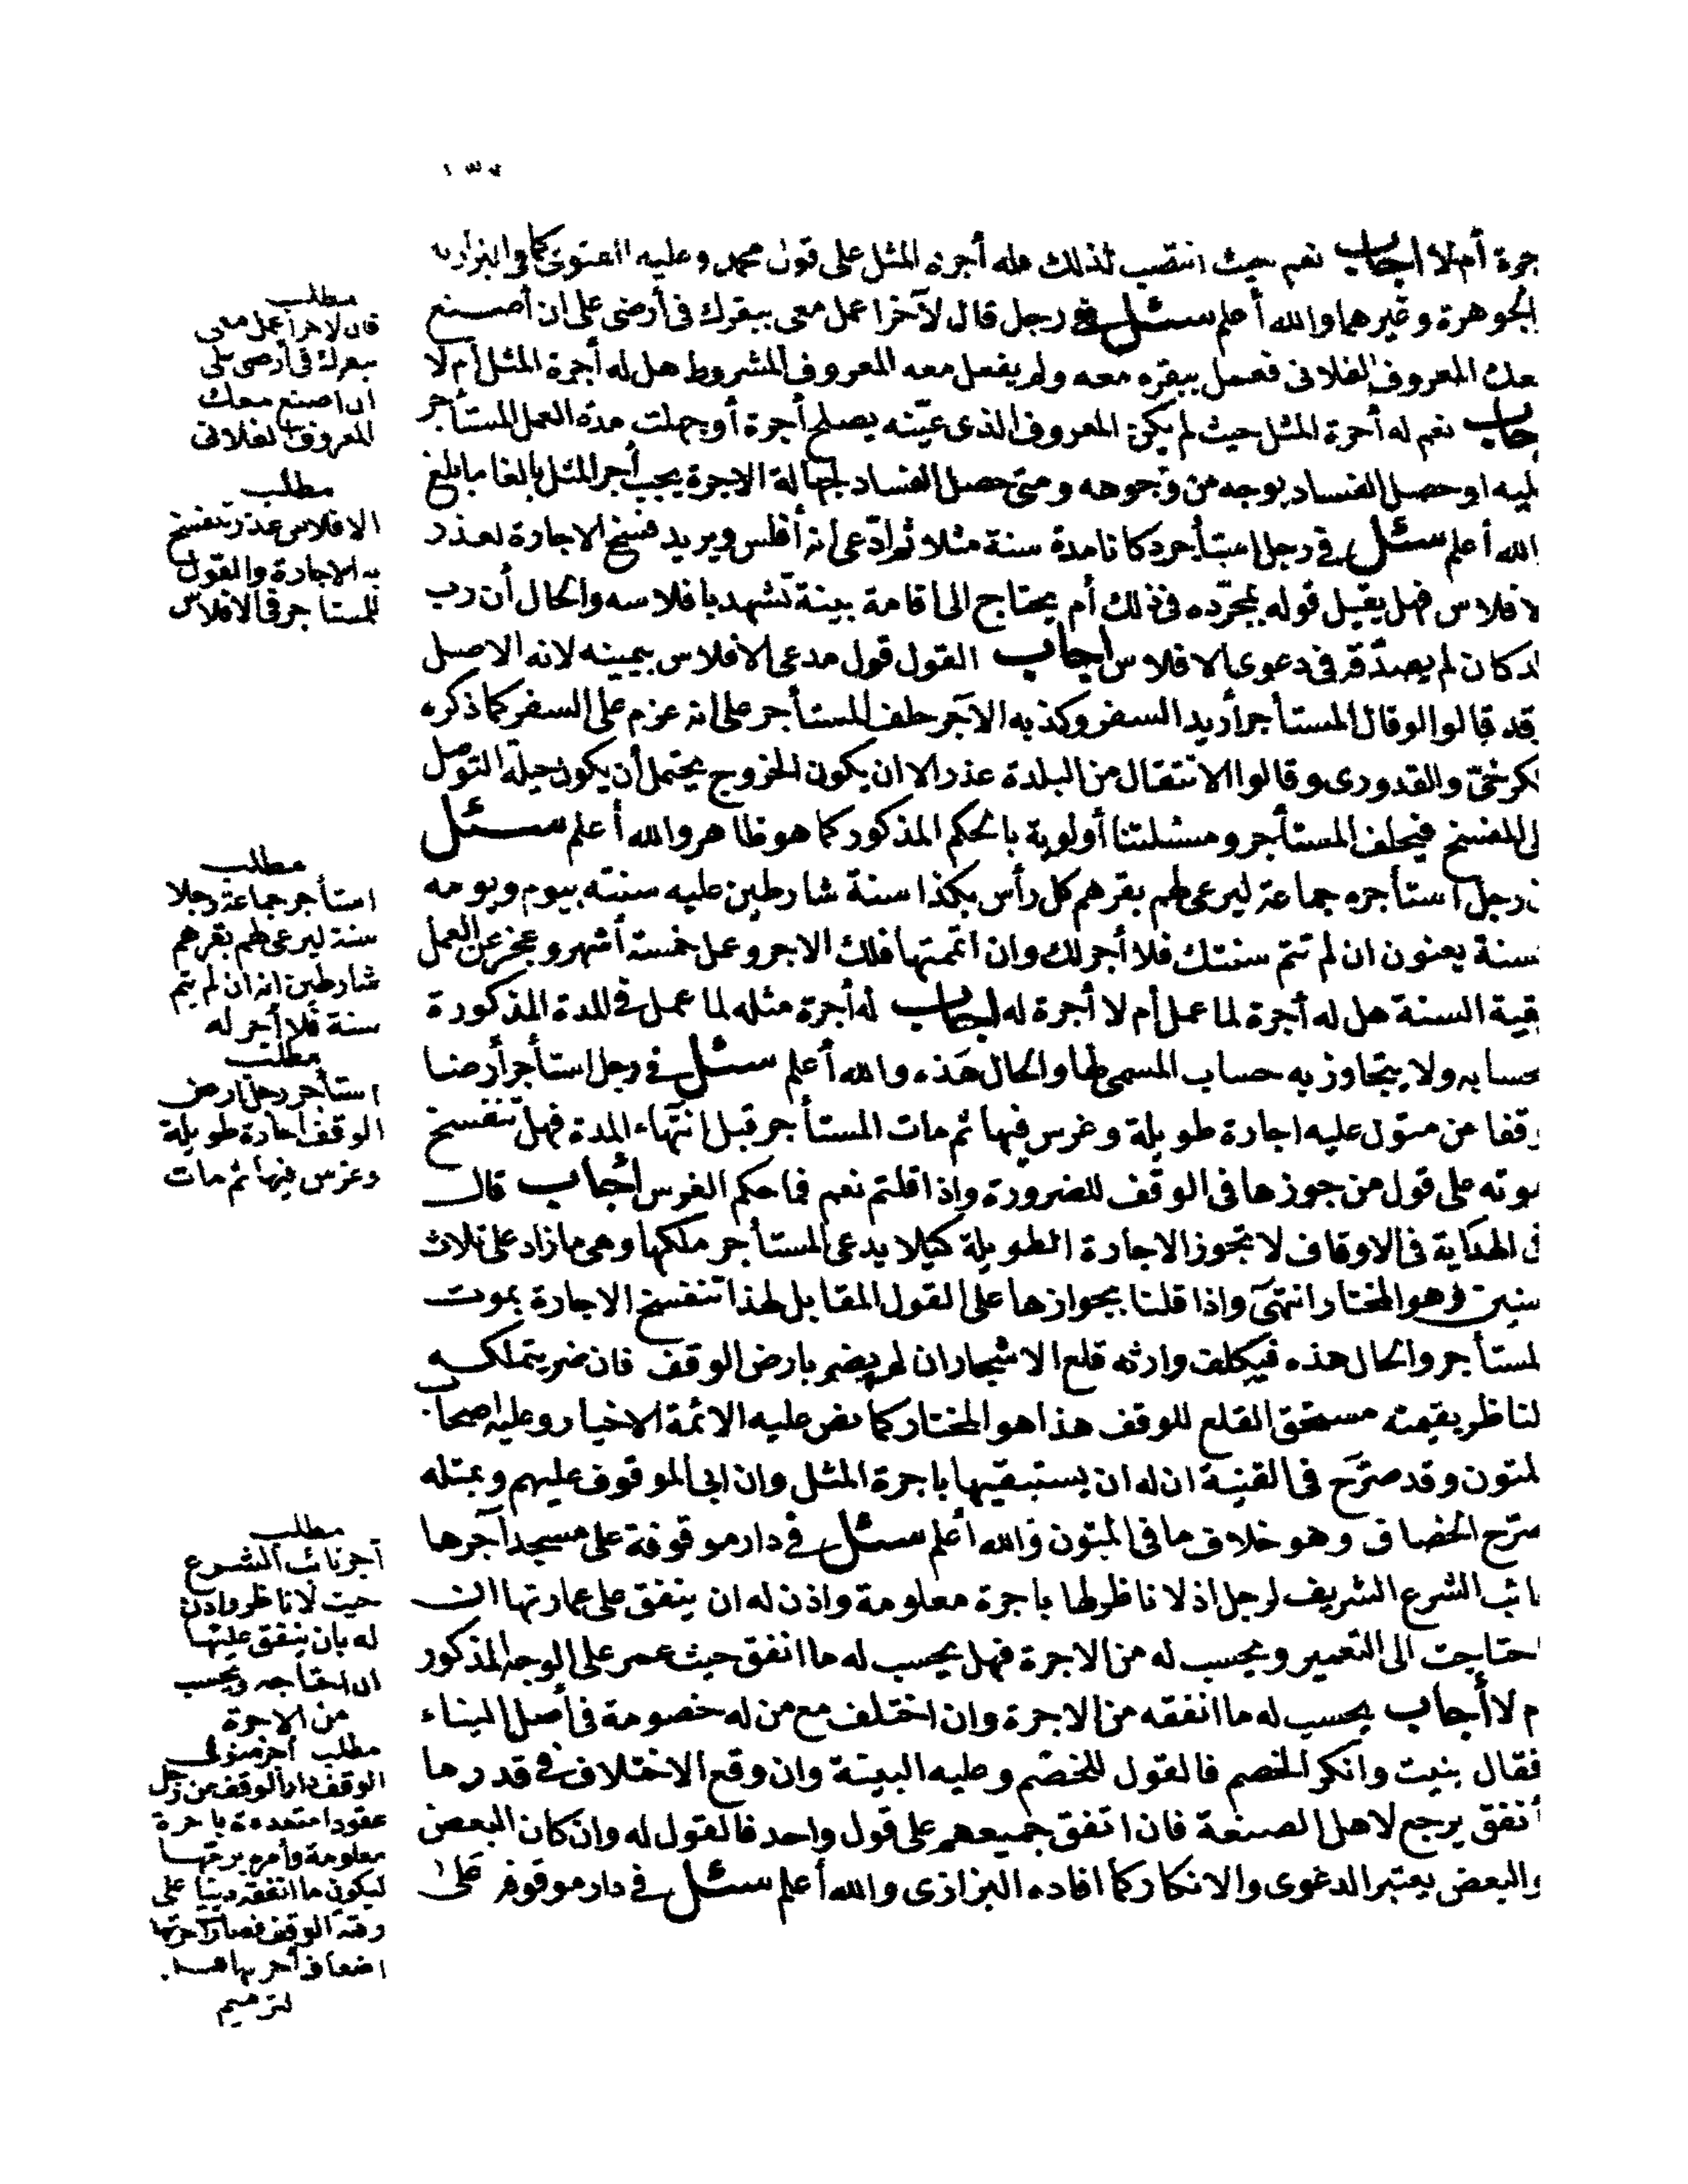 ١٣٢
جرة أم لا اجاب نعم حيث انتصب لذلك فله أجرة المثل على قول محمد وعليه الفتوى كما في البزازية
الجوهرة وغيرهما والله أعلم سئل في رجل قال لآخر اعمل معى ببقرك فى أرضى على ان أصنع
معك المعروف الفلانى فعمل ببقره معه ولم يفعل معه المعروف المشروط هل له أجرة المثل أم لا
جاب نعم له أجرة المثل حيث لم يكن المعروف الذى عيّنه يصلح أجرة أو جهلت مدة العمل المستأجر
ليه او حصل الفساد بوجه من وجوهه ومتى حصل الفساد لجهالة الاجرة يجب أجر المثل بالغا ما بلغ
الله أعلم سئل في رجل استأجر دكانا مدة سنة مثلا ثم ادّعى انه أفلس ويريد فسخ الاجارة لعذر
لافلاس فهل يقبل قوله بمجرّده فى ذلك أم يحتاج الى اقامة بينة تشهد بافلاسه والحال أن رب
لدكان لم يصدّقه فى دعوى الافلاس اجاب القول قول مدعى الافلاس بيمينه لانه الاصل
وقد قالوا لو قال المستأجر أريد السفر وكذبه الآجر حلف المستأجر على انه عزم على السفر كما ذكره
لكرخىّ والقدورى وقالوا الانتقال من البلدة عذر الا ان يكون الخروج يحتمل أن يكون حيلة التوصل
لى للفسخ فيحلف المستأجر ومسئلتنا أولوية بالحكم المذكور كما هو ظاهر والله أعلم سئل
فى رجل استأجره جماعة ليرعى لهم بقرهم كل رأس بكذا سنة شارطين عليه سنته بيوم ويومه
بسنة يعنون ان لم تتم سنتك فلا أجر لك وان اتممتها فلك الاجر وعمل خمسة أشهر وعجز عن العمل
بقية السنة هل له أجرة لما عمل أم لا أجرة له اجاب له أجرة مثله لما عمل فى المدة المذكورة
بحسابه ولا يتجاوز به حساب المسمى لها والحال هذه والله أعلم سئل في رجل استأجر أرضا
وقفا من متول عليه اجارة طويلة وغرس فيها ثم مات المستأجر قبل انتهاء المدة فهل تنفسخ
بموته على قول من جوزها فى الوقف للضرورة واذا قلتم نعم فما حكم الغرس اجاب قال
فى الهداية فى الاوقاف لا تجوز الاجارة الطويلة كيلا يدعى المستأجر ملكها وهى ما زاد على ثلاث
سنين وهو المختار انتهى واذا قلنا بجوازها على القول المقابل لهذا تنفسخ الاجارة بموت
لمستأجر والحال هذه فيكلف وارثه قلع الاشجار ان لم يضر بارض الوقف فان ضر يتملكه
لناظر بقيمته مستحق القلع للوقف هذا هو المختار كما نص عليه الائمة الاخيار وعليه اصحاب
لمتون وقد صرّح فى القنية ان له ان يستبقيها باجرة المثل وان ابى الموقوف عليهم وبمثله
صرّح الخصاف وهو خلاف ما فى المتون والله أعلم سئل في دار موقوفة على مسجد آجرها
نائب الشرع الشريف لرجل اذ لا ناظر لها باجرة معلومة واذن له ان ينفق على عمارتها ان
احتاجت الى التعمير ويحسب له من الاجرة فهل يحسب له ما انفق حيث عمر على الوجه المذكور
م لا أجاب يحسب له ما انفقه من الاجرة وان اختلف مع من له خصومة فى أصل البناء
فقال بنيت وانكر الخصم فالقول للخصم وعليه البينة وان وقع الاختلاف فى قدر ما
أنفق يرجع لاهل الصنعة فان اتفق جميعهم على قول واحد فالقول له وان كان البعض
والبعض يعتبر الدعوى والانكار كما افاده البزازى والله أعلم سئل في دار موقوفة على
مطلب
قال لآخر اعمل معى
ببقرك فى أرضى على
ان اصنع معك
المعروف الفلانى
مطلب
الافلاس عذر تنفسخ
به الاجارة والقول
للمستاجر فى الافلاس
مطلب
استأجر جماعة رجلا
سنة ليرعى لهم بقرهم
شارطين انه ان لم يتم
سنة فلا أجر له
مطلب
استأجر رجل أرض
الوقف اجارة طويلة
وغرس فيها ثم مات
مطلب
آجر نائب الشرع
حيث لا ناظر واذن
له بان ينفق عليها
ان احتاجت ويحسب
من الاجرة
مطلب آجر متولى
الوقف دار الوقف من رجل
عقودا متعددة باجرة
معلومة وأمره برمّها
ليكون ما انفقه دينا على
رقبة الوقف فصار أجرتها
اضعاف أجرتها
لترميم